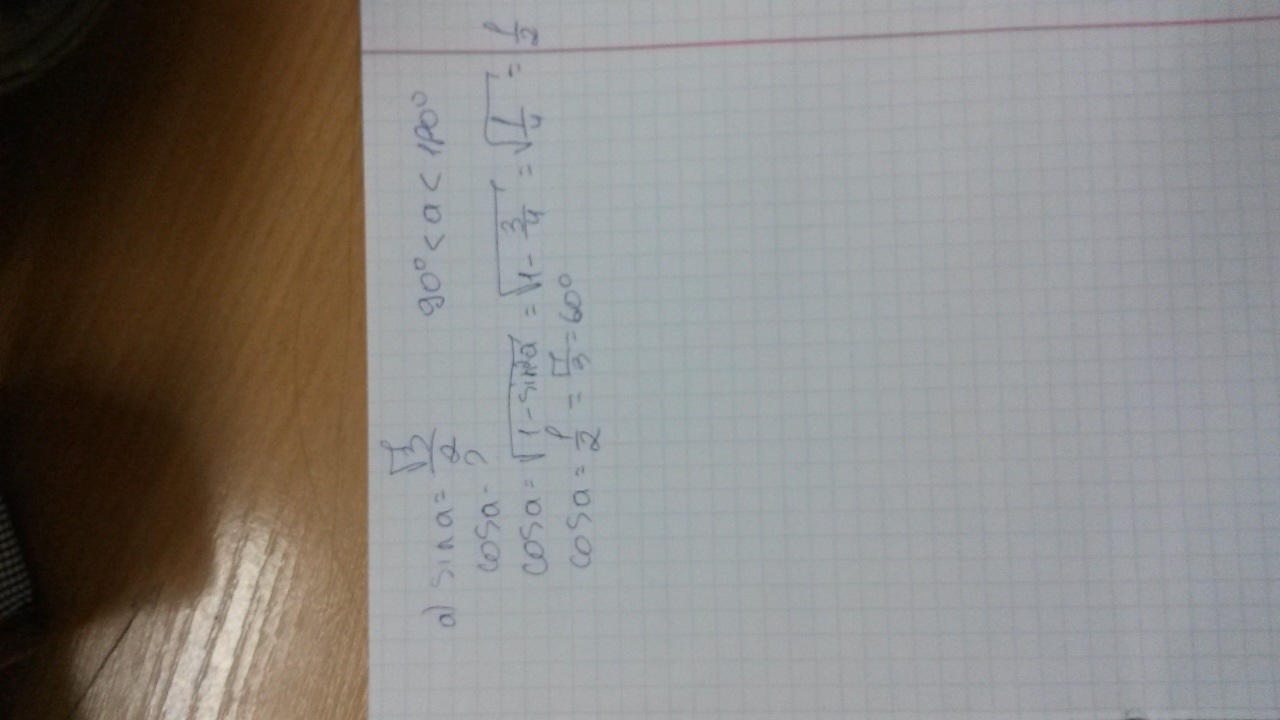 a) sin a = √3/2 90° < a < 180°
cos a - ?
cos a = √(1 - sin²a) = √(1 - 3/4) = √(1/4) = 1/2
cos a = 1/2 = π/3 = 60°